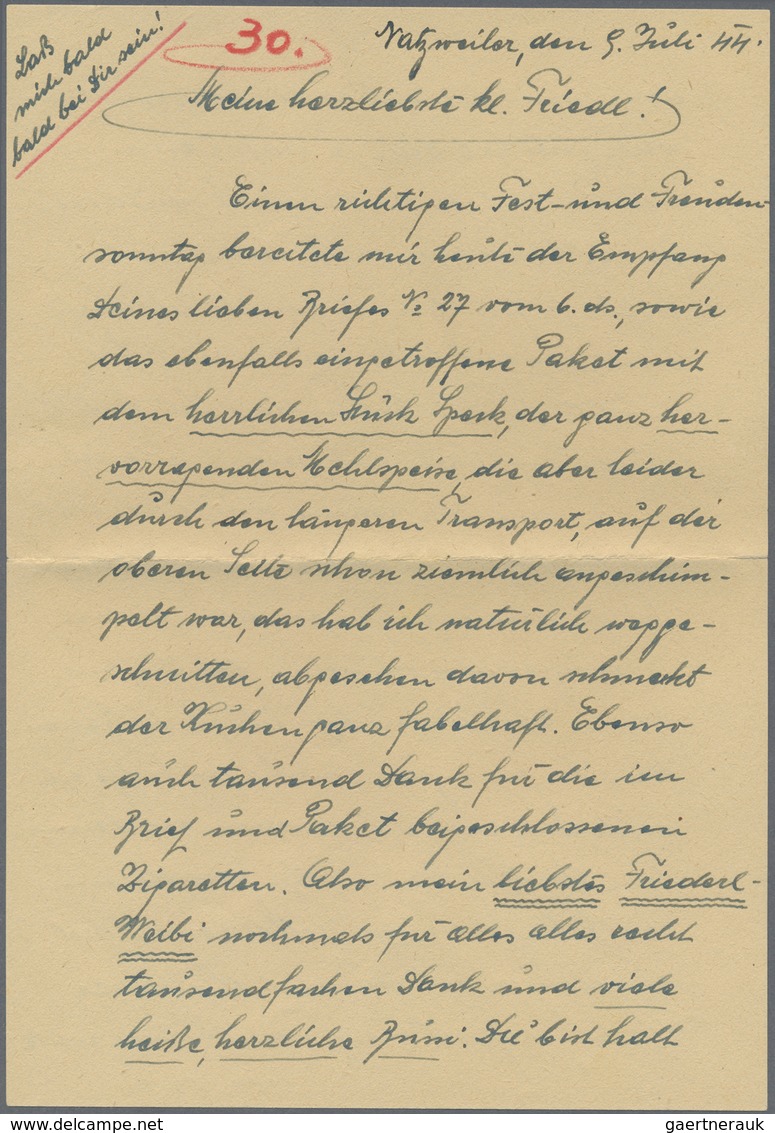 Laß
mich bald
bald bei Dir sein!
30.
Natzweiler, den 9. Juli 44.
Meine herzliebste kl. Friedl!
Einen richtigen Fest- und Freuden-
sonntag bereitete mir heute der Empfang
Deines lieben Briefes No 27 vom 6. ds., sowie
das ebenfalls eingetroffene Paket mit
dem herrlichen Stück Speck, der ganz her-
vorragenden Mehlspeise, die aber leider
durch den längeren Transport, auf der
oberen Seite schon ziemlich angeschim-
pelt war, das hab ich natürlich wegge-
schnitten, abgesehen davon schmeckt
der Kuchen ganz fabelhaft. Ebenso
auch tausend Dank für die im
Brief und Paket beigeschlossenen
Zigaretten. Also mein liebstes Friederl-
Weibi nochmals für alles alles recht
tausendfachen Dank und viele
heiße, herzliche Bussi. Du bist halt
gaertnerauk